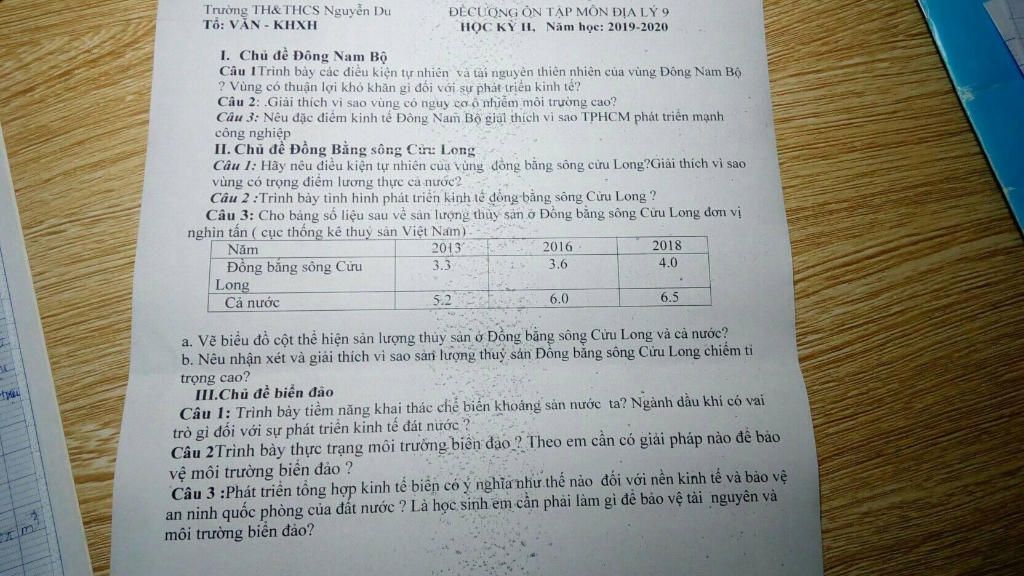 Trường TH&THCS Nguyễn Du ĐỀ CƯƠNG ÔN TẬP MÔN ĐỊA LÝ 9
Tổ: VĂN - KHXH HỌC KỲ II, Năm học: 2019-2020
I. Chủ đề Đông Nam Bộ
Câu 1Trình bày các điều kiện tự nhiên và tài nguyên thiên nhiên của vùng Đông Nam Bộ
? Vùng có thuận lợi khó khăn gì đối với sự phát triển kinh tế?
Câu 2: .Giải thích vì sao vùng có nguy cơ ô nhiễm môi trường cao?
Câu 3: Nêu đặc điểm kinh tế Đông Nam Bộ giải thích vì sao TPHCM phát triển mạnh
công nghiệp
II. Chủ đề Đồng Bằng sông Cửu Long
Câu 1: Hãy nêu điều kiện tự nhiên của vùng đồng bằng sông cửu Long?Giải thích vì sao
vùng có trọng điểm lương thực cả nước?
Câu 2 :Trình bày tình hình phát triển kinh tế đồng bằng sông Cửu Long ?
Câu 3: Cho bảng số liệu sau về sản lượng thủy sản ở Đồng bằng sông Cửu Long đơn vị
nghìn tấn ( cục thống kê thuỷ sản Việt Nam)
Năm 2013 2016 2018
Đồng bằng sông Cửu 3.3 3.6 4.0
Long
Cả nước 5.2 6.0 6.5
a. Vẽ biểu đồ cột thể hiện sản lượng thủy sản ở Đồng bằng sông Cửu Long và cả nước?
b. Nêu nhận xét và giải thích vì sao sản lượng thuỷ sản Đồng bằng sông Cửu Long chiếm tỉ
trọng cao?
III.Chủ đề biển đảo
Câu 1: Trình bày tiềm năng khai thác chế biến khoáng sản nước ta? Ngành dầu khí có vai
trò gì đối với sự phát triển kinh tế đất nước ?
Câu 2Trình bày thực trạng môi trường biển đảo ? Theo em cần có giải pháp nào để bảo
vệ môi trường biển đảo ?
Câu 3 :Phát triển tổng hợp kinh tế biển có ý nghĩa như thế nào đối với nền kinh tế và bảo vệ
an ninh quốc phòng của đất nước ? Là học sinh em cần phải làm gì để bảo vệ tài nguyên và
môi trường biển đảo?